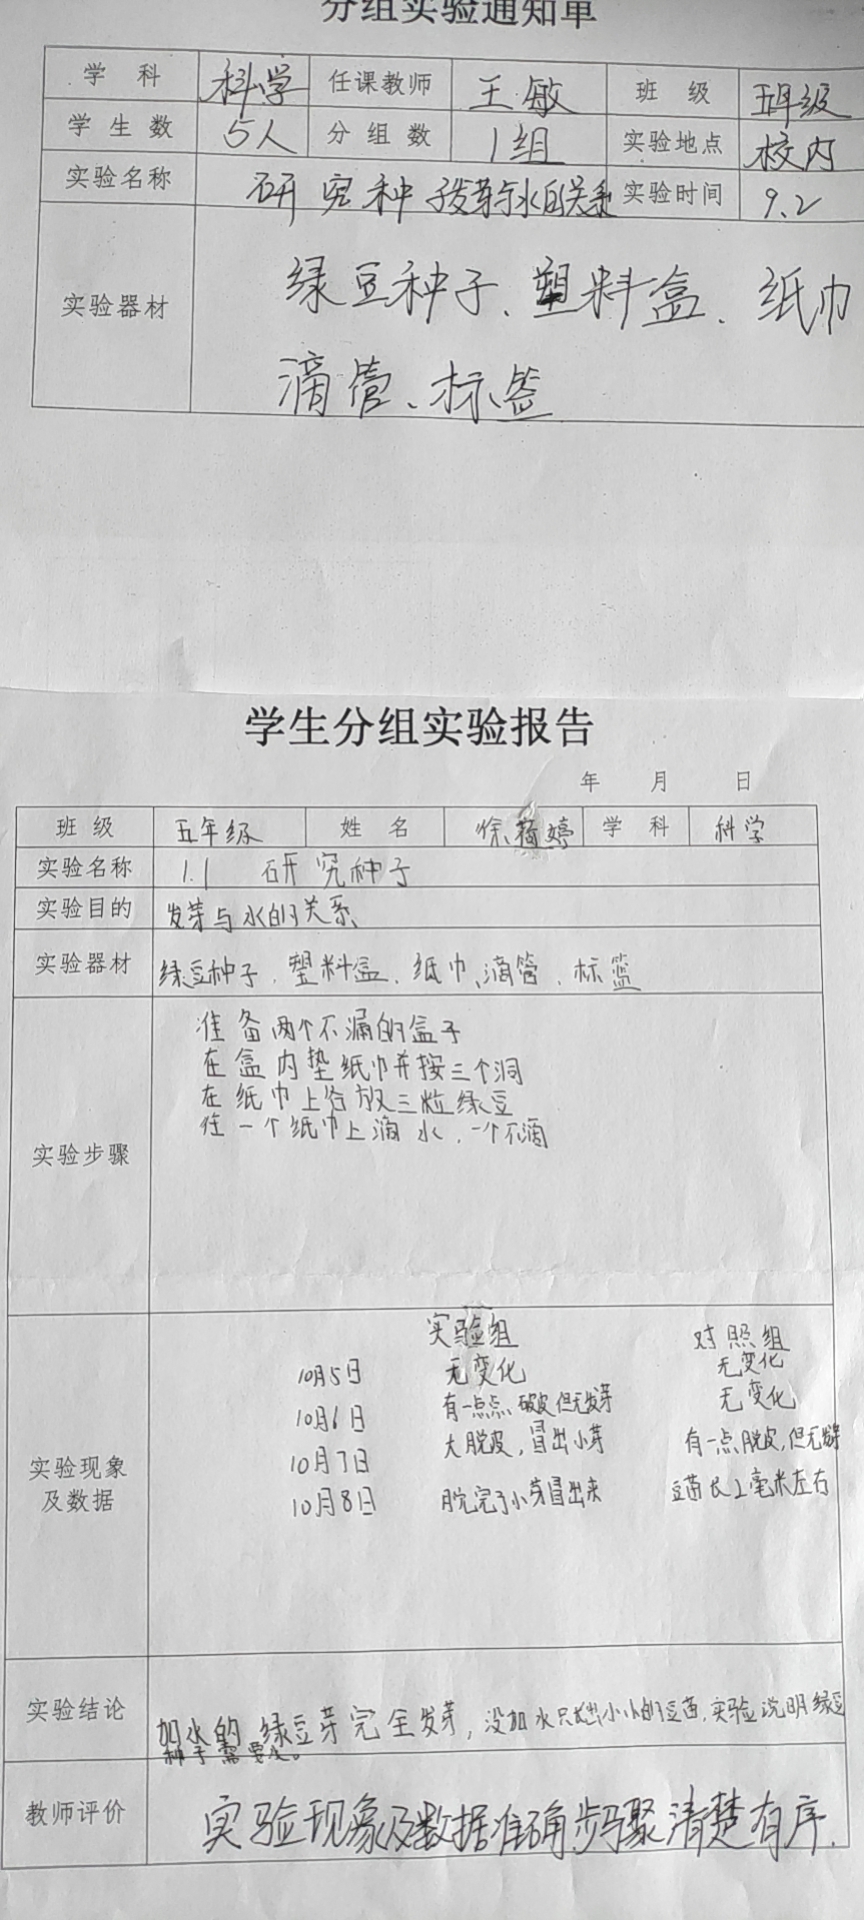 分组实验通知单
学 科 科学 任课教师 王敏 班 级 五年级
学 生 数 5人 分 组 数 1组 实验地点 校内
实验名称 研究种子发芽与水的关系 实验时间 9.2
实验器材 绿豆种子、塑料盒、纸巾
滴管、标签
学生分组实验报告
年 月 日
班 级 五年级 姓 名 徐 婷 学 科 科学
实验名称 1.1 研究种子
实验目的 发芽与水的关系
实验器材 绿豆种子、塑料盒、纸巾、滴管、标篮
实验步骤
准备两个不漏的盒子
在盒内垫纸巾并按三个洞
在纸巾上各放三粒绿豆
在一个纸巾上滴水,一个不滴
实验现象及数据
实验组 对照组
10月5日 无变化 无变化
10月6日 有一点点破皮但无发芽 无变化
10月7日 大脱皮,冒出小芽 有一点脱皮,但无发芽
10月8日 脱完了小芽冒出来 豆苗长1毫米左右
实验结论 加水的绿豆芽完全发芽,没加水只 出小小的豆苗,实验说明绿豆
种子需要水。
教师评价 实验现象及数据准确,步骤清楚有序.